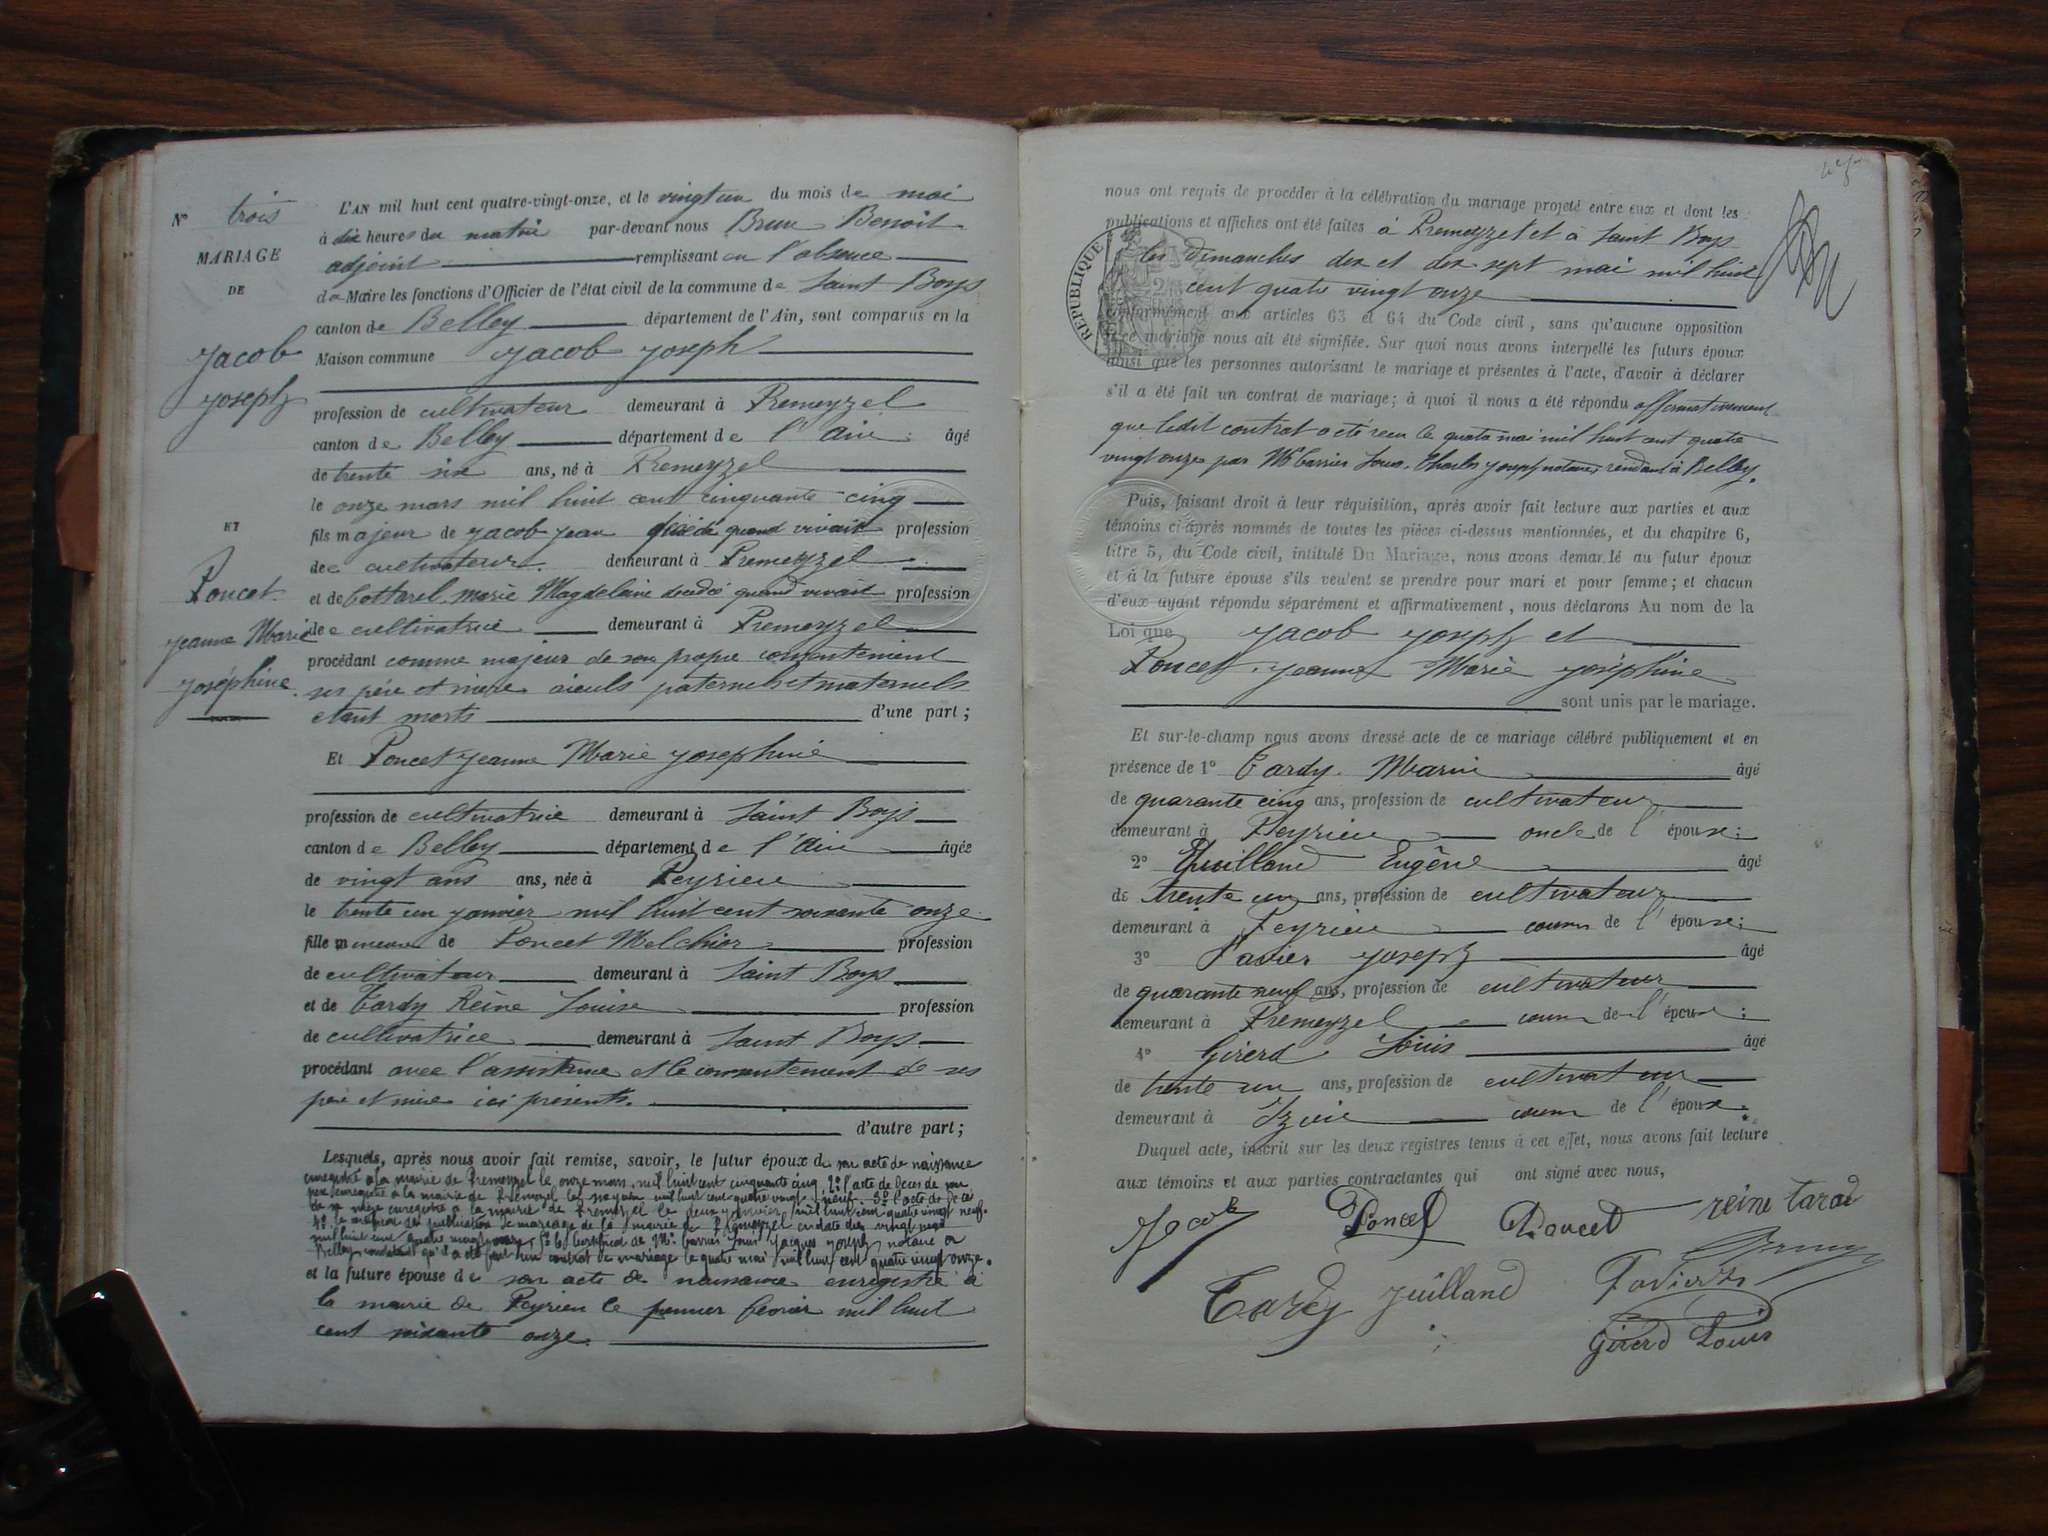 N° trois
MARIAGE
DE
Jacob
Joseph
ET
Poncet
Jeanne Marie
Joséphine
L'AN mil huit cent quatre-vingt-onze, et le vingt un du mois de mai
à dix heures du matin par-devant nous Brun Benoit
adjoint remplissant en l'absence
du Maire les fonctions d'Officier de l'état civil de la commune de Saint Boys
canton de Belley département de l'Ain, sont comparus en la
Maison commune Jacob Joseph
profession de cultivateur demeurant à Premeyzel
canton de Belley département de l'Ain âgé
de trente six ans, né à Premeyzel
le onze mars mil huit cent cinquante cinq
fils majeur de Jacob Jean décédé quand vivait profession
de cultivateur demeurant à Premeyzel
et de Cottarel Marie Magdelaine décédée quand vivait profession
de cultivatrice demeurant à Premeyzel
procédant comme majeur de son propre consentement
ses père et mère aieuls paternels et maternels
étant morts d'une part ;
Et Poncet Jeanne Marie Joséphine
profession de cultivatrice demeurant à Saint Boys
canton de Belley département de l'Ain âgée
de vingt ans ans, née à Peyrieu
le trente un janvier mil huit cent soixante onze
fille mineure de Poncet Melchior profession
de cultivateur demeurant à Saint Boys
et de Tardy Reine Louise profession
de cultivatrice demeurant à Saint Boys
procédant avec l'assistance et le consentement de ses
père et mère ici présents.
d'autre part ;
Lesquels, après nous avoir fait remise, savoir, le futur époux de son acte de naissance
enregistré à la mairie de Premeyzel le onze mars mil huit cent cinquante cinq 2° l'acte de décès de son
père enregistré à la mairie de Premeyzel le mil huit cent quatre vingt 3° l'acte de décès
de sa mère enregistré à la mairie de Premeyzel le deux janvier mil huit cent quatre vingt neuf.
4° le de publication de mariage de la mairie de Premeyzel en date du vingt
mil huit cent quatre vingt onze 5° le certificat de Me Carrier Louis Jacques Joseph notaire à
Belley constatant qu'il a été fait un contrat de mariage le quatre mai mil huit cent quatre vingt onze.
et la future épouse de son acte de naissance enregistré à
la mairie de Peyrieu le premier février mil huit
cent soixante onze.
nous ont requis de procéder à la célébration du mariage projeté entre eux et dont les
publications et affiches ont été faites à Premeyzel et à Saint Boys
les dimanches dix et dix sept mai mil huit
cent quatre vingt onze
conformément aux articles 63 et 64 du Code civil, sans qu'aucune opposition
à ce mariage nous ait été signifiée. Sur quoi nous avons interpellé les futurs époux
ainsi que les personnes autorisant le mariage et présentes à l'acte, d'avoir à déclarer
s'il a été fait un contrat de mariage; à quoi il nous a été répondu affirmativement
que ledit contrat a été reçu le quatre mai mil huit cent quatre
vingt onze par Me Carrier Louis Charles Joseph notaire, résidant à Belley.
REPUBLIQUE
Puis, faisant droit à leur réquisition, après avoir fait lecture aux parties et aux
témoins ci-après nommés de toutes les pièces ci-dessus mentionnées, et du chapitre 6,
titre 5, du Code civil, intitulé Du Mariage, nous avons demandé au futur époux
et à la future épouse s'ils veulent se prendre pour mari et pour femme; et chacun
d'eux ayant répondu séparément et affirmativement, nous déclarons Au nom de la
Loi que Jacob Joseph et
Poncet Jeanne Marie Joséphine
sont unis par le mariage.
Et sur-le-champ nous avons dressé acte de ce mariage célébré publiquement et en
présence de 1° Tardy Marin âgé
de quarante cinq ans, profession de cultivateur
demeurant à Peyrieu oncle de l'épouse;
2° Thuilland Eugène âgé
de trente un ans, profession de cultivateur
demeurant à Peyrieu cousin de l'épouse;
3° Pavier Joseph âgé
de quarante neuf ans, profession de cultivateur
demeurant à Premeyzel cousin de l'épouse;
4° Girerd Louis âgé
de trente un ans, profession de cultivateur
demeurant à Izieu cousin de l'épouse.
Duquel acte, inscrit sur les deux registres tenus à cet effet, nous avons fait lecture
aux témoins et aux parties contractantes qui ont signé avec nous,
Jacob Poncet Poncet reine tardi
Brun
Tardy Juilland Pavier
Girerd Louis